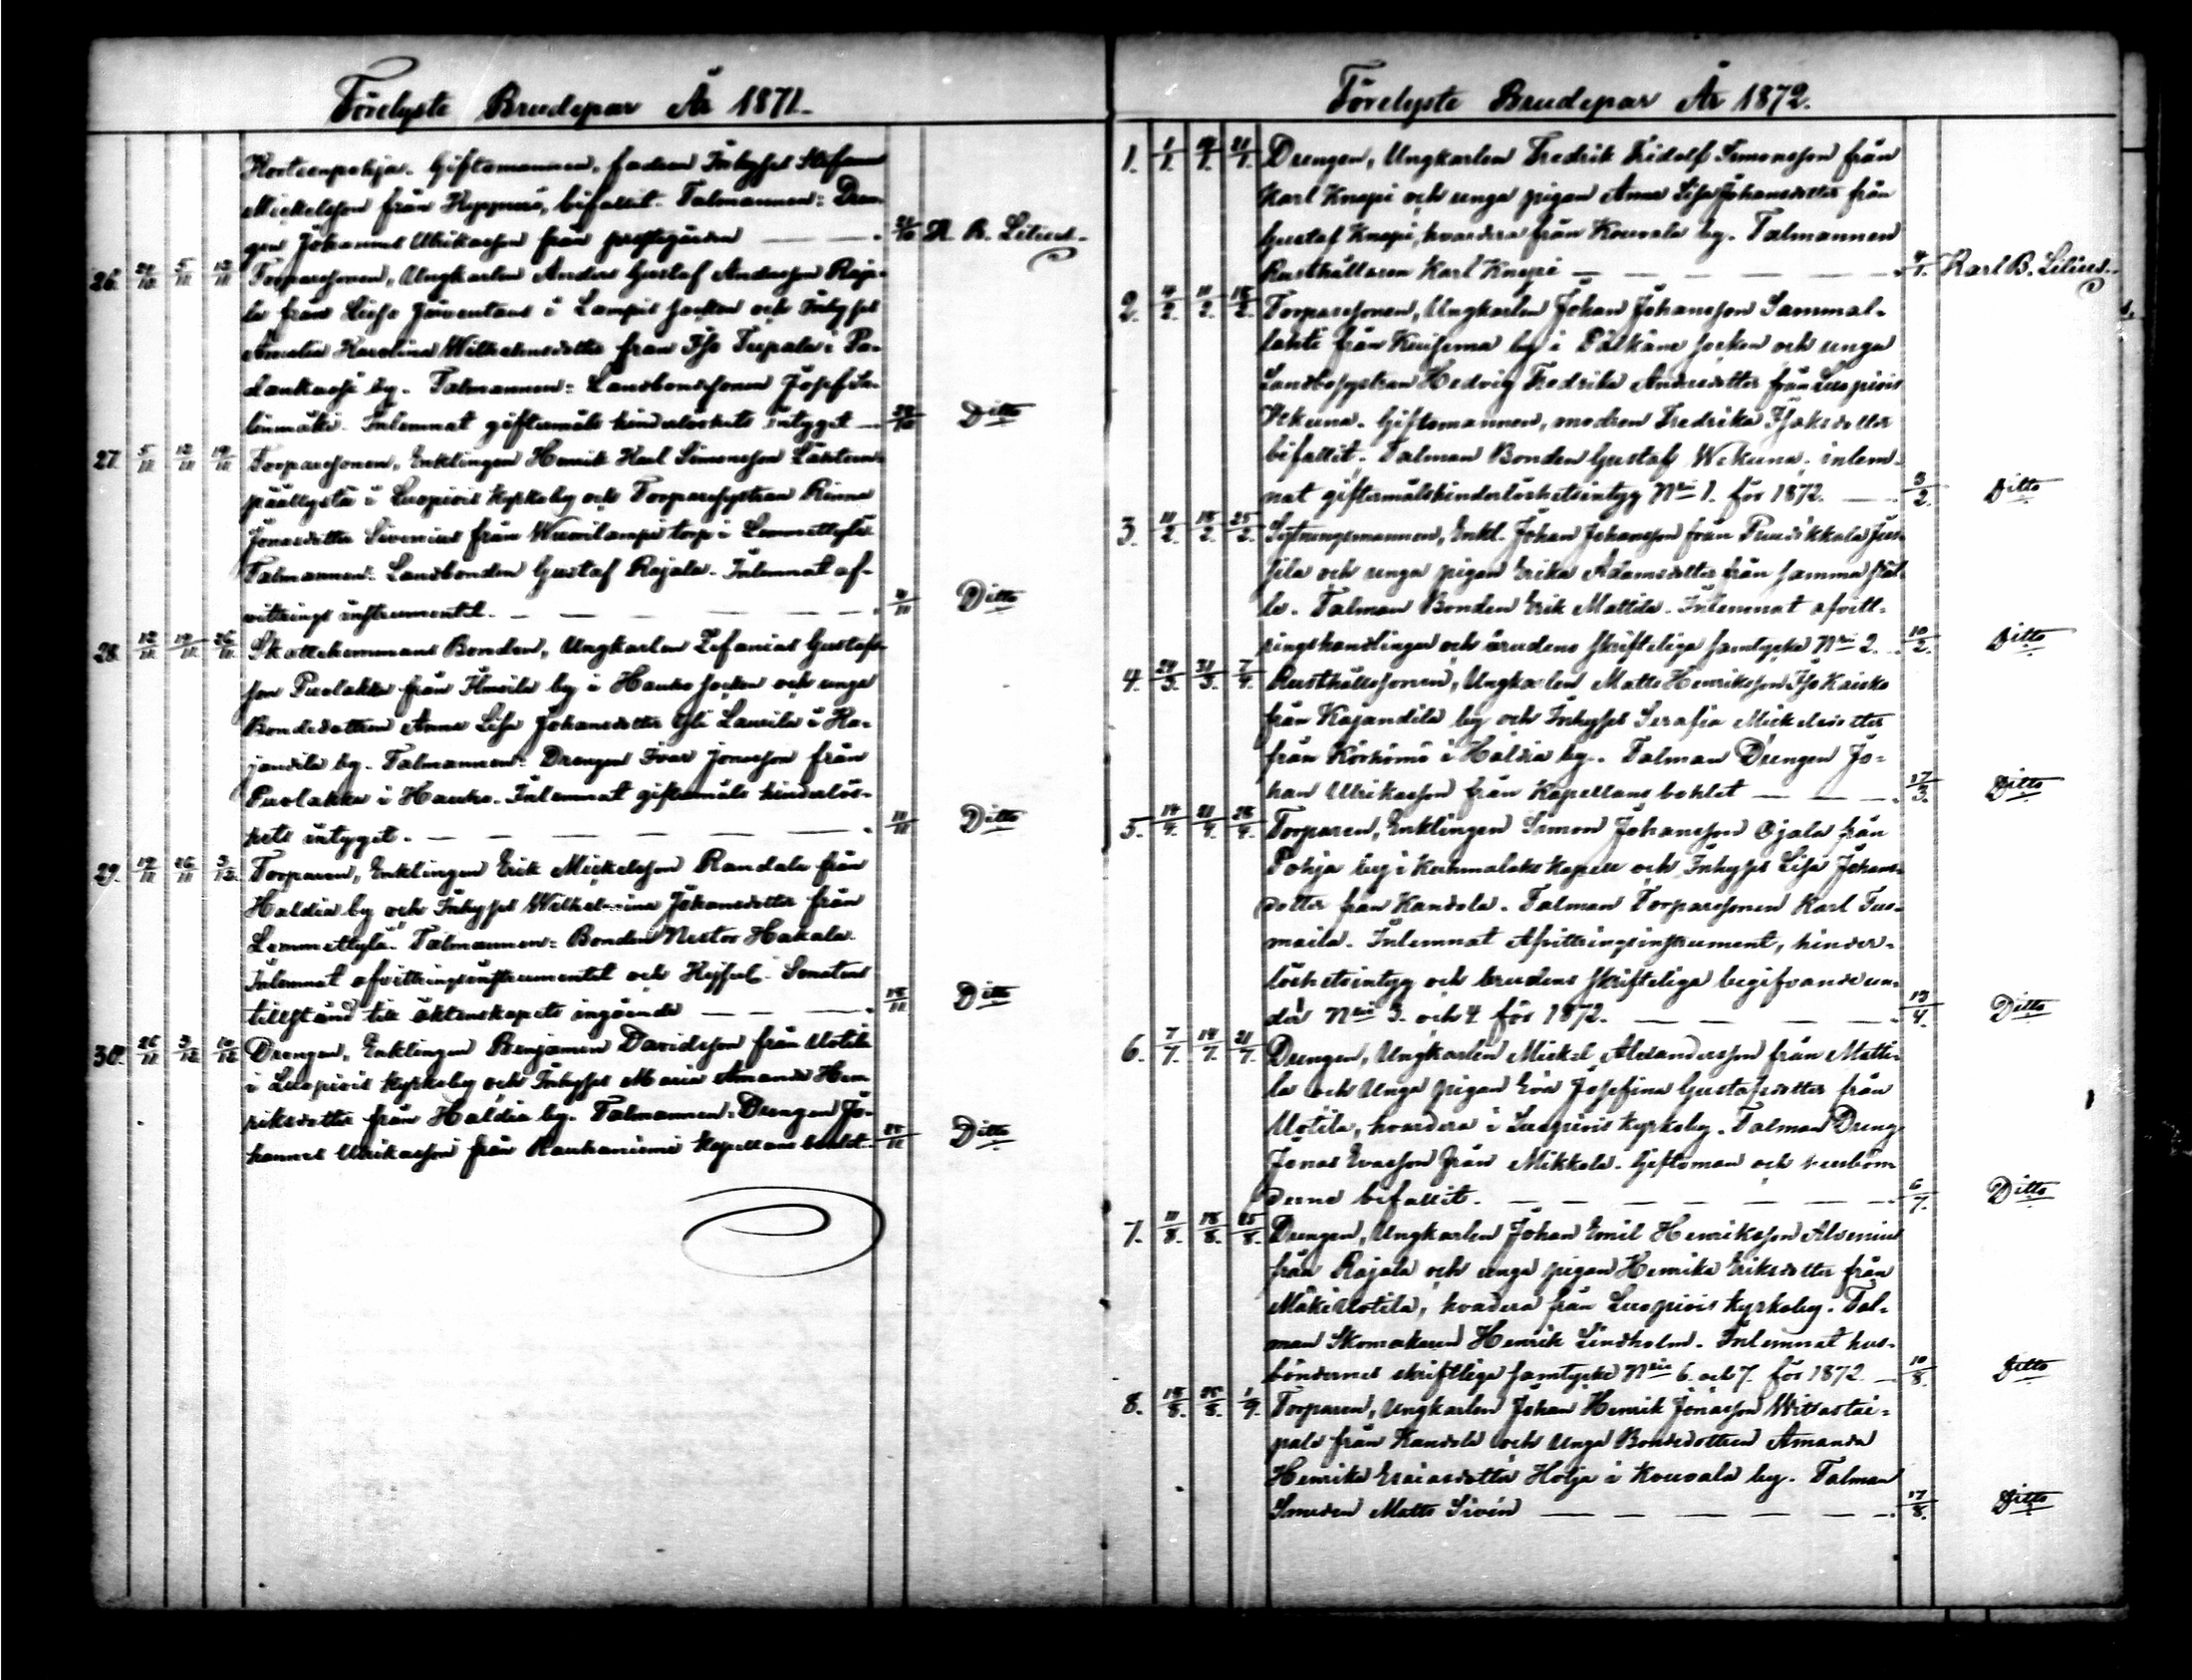 Förelyste Brudepar År 1871.
Kortteenpohja. Giftomannen, fadren Inhyses Stefan
Mickelsson från Kyppärä, bifallit. Talmannen: Dren-
gen Johannes Ulriksson från prestgården — — K. B. Lilius.
26. 29/10 5/11 12/11 Torparesonen, Ungkarlen Anders Gustaf Andersson Raja-
la från Lieso Juventaus i Lampis socken och Inhyses
Amalia Karolina Wilhelmsdotter från Iso Tupala i Pa-
dankoski by. Talmannen: Landbondesonen Josef Sa-
linmäki. Inlemnat giftermåls hinderlöshets intyget — Ditto
27. 5/11 12/11 19/11 Torparesonen, Enklingen Henrik Karl Simonsson Lähteen-
päällystä i Luopiois kyrkoby och Torparesystran Rinna
Jonasdotter Sivenius från Wuorilampi torp i Lemmettylä
Talmannen: Landbonden Gustaf Rajala. Inlemnat af-
vittrings instrumentet. — — — Ditto
28. 12/11 19/11 26/11 Skattehemmans Bonden, Ungkarlen Zefanias Gustafs-
son Puolakka från Ilmoila by i Hauho socken och unga
Bondedottren Anna Lisa Johansdotter Yli Laurila i Ka-
jandila by. Talmannen: Drengen Ivar Jonasson från
Puolakka i Hauho. Inlemnat giftermåls hinderlös-
hets intyget. — — — 11/11 Ditto
29. 19/11 26/11 3/12 Torparen, Enklingen Erik Mickelsson Randala från
Haldia by och Inhyses Wilhelmina Johansdotter från
Lemmettylä. Talmannen: Bonden Nestor Hakala.
Inlemnat afvittringsinstrumentet och Kejserl. Senatens
tillstånd till äktenskapets ingående — — 18/11 Ditto
30. 26/11 3/12 10/12 Drengen, Enklingen Benjamin Davidsson från Uotila
i Luopiois kyrkoby och Inhyses Maria Amanda Hen-
riksdotter från Haldia by. Talmannen: Drengen Jo-
hannes Ulriksson från Rauhaniemi kapellans bohlet. 25/11 Ditto
Förelyste Brudepar År 1872.
1. 7/1. 14/1. 21/1. Drengen, Ungkarlen Fredrik Fridolf Simonsson från
Karl Knepi och unga pigan Anna Lisa Johansdotter från
Gustaf Knepi, hvardera från Kouvala by. Talmannen
Rusthållaren Karl Knepi — — — Karl B. Lilius.
2. 4/2. 11/2. 18/2. Torparesonen, Ungkarlen Johan Johansson Sammal-
lahti från Kuisema by i Pälkäne socken och unga
Landbosystran Hedvig Fredrika Andersdotter från Luopiois
Wekuna. Giftomannen, modren Fredrika Isaksdotter
bifallit. Talman Bonden Gustaf Wekuna. inlem-
nat giftermålshinderlöshetsintyg Nris 1. för 1872. — 3/2. Ditto
3. 11/2. 18/2. 25/2. Sytningsmannen, Enkl. Johan Johansson från Puudikkala Jus-
sila och unga pigan Erika Adamsdotter från samma stäl-
le. Talman Bonden Erik Mattila. Inlemnat afvitt-
ringshandlingar och brudens skrifteliga samtycke Nris 2. 10/2. Ditto
4. 24/3. 31/3. 7/4. Rusthållssonen, Ungkarlen Matts Henriksson Iso Kaisko
från Kajandila by och Inhyses Serafia Mickelsdotter
från Körkömö i Haldia by. Talman Drengen Jo-
han Ulriksson från Kapellans bohlet — — 17/3. Ditto
5. 14/4. 21/4. 28/4. Torparen, Enklingen Simon Johansson Ojala från
Pohja by i Kuhmalaks Kapell och Inhyses Lisa Johans-
dotter från Kandola. Talman Torparesonen Karl Tuo-
maila. Inlemnat Afvittringsinstrument, hinder-
löshetsintyg och brudens skrifteliga begifvande un-
der Nris 3. och 4 för 1872. — — — 13/4 Ditto
6. 7/7. 14/7. 21/7. Drengen, Ungkarlen Mickel Alexandersson från Matti-
la och Unga pigan Eva Josefina Gustafsdotter från
Uotila, hvardera i Luopiois kyrkoby. Talman Dreng
Jonas Evasson från Mikkola. Giftoman och husbön-
derne bifallit. — — — 6/7. Ditto
7. 11/8. 18/8. 25/8. Drengen, Ungkarlen Johan Emil Henriksson Alvenius
från Rajala och unga pigan Henrika Eriksdotter från
Mäki Uotila, hvardera från Luopiois kyrkoby. Tal-
man Skomakaren Henrik Lindholm. Inlemnat hus-
böndernes skriftliga samtycke Nris 6. och 7. för 1872. — 10/8. Ditto
8. 18/8. 25/8. 1/9. Torparen, Ungkarlen Johan Henrik Jonasson Witsastai-
pale från Kandola och Unga Bondedottren Amanda
Henrika Esaiasdotter Hoija i Kouvala by. Talman
Smeden Matts Sivén — — — 17/8. Ditto